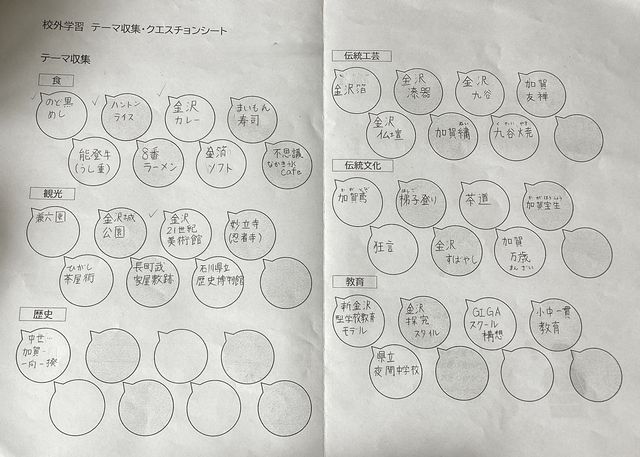 校外学習 テーマ収集・クエスチョンシート
テーマ収集
食
のど黒
めし
ハントン
ライス
金沢
カレー
まいもん
寿司
能登牛
(うし重)
8番
ラーメン
金箔
ソフト
不思議
なかき氷
Cafe
観光
兼六園
金沢城
公園
金沢
21世紀
美術館
妙立寺
(忍者寺)
ひがし
茶屋街
長町武
家屋敷跡
石川県立
歴史博物館
歴史
中世…
加賀…
一向一揆
伝統工芸
金沢箔
金沢
漆器
金沢
九谷
加賀
友禅
金沢
仏壇
ぬい
加賀繍
くたに やき
九谷焼
伝統文化
かがとび
加賀鳶
はしご
梯子登り
茶道
かがほうしょう
加賀宝生
狂言
金沢
すばやし
加賀
万歳
まんざい
教育
新金沢
型学校教育
モデル
金沢
探究
スタイル
GIGA
スクール
構想
小中一貫
教育
県立
夜間中学校